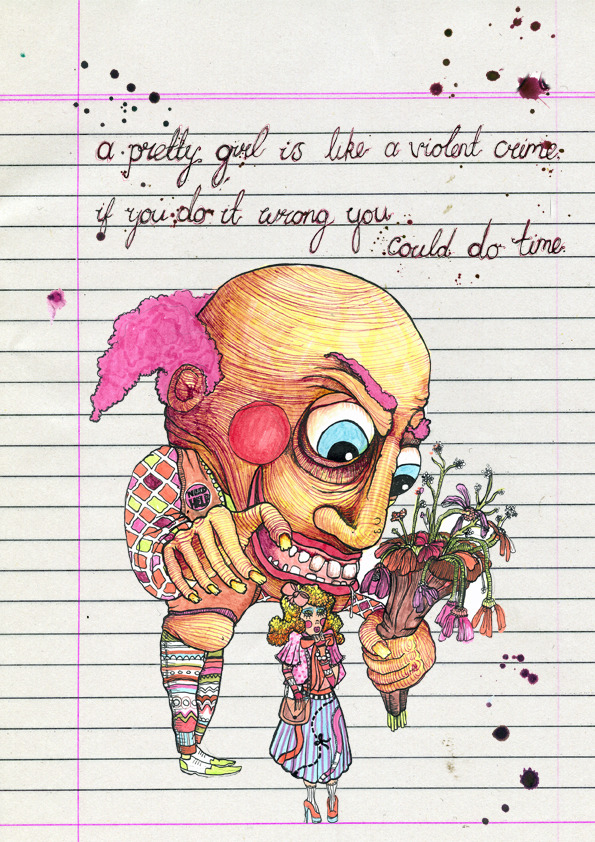 a pretty girl is like a violent crime.
if you do it wrong you
could do time.
NEED
HELP